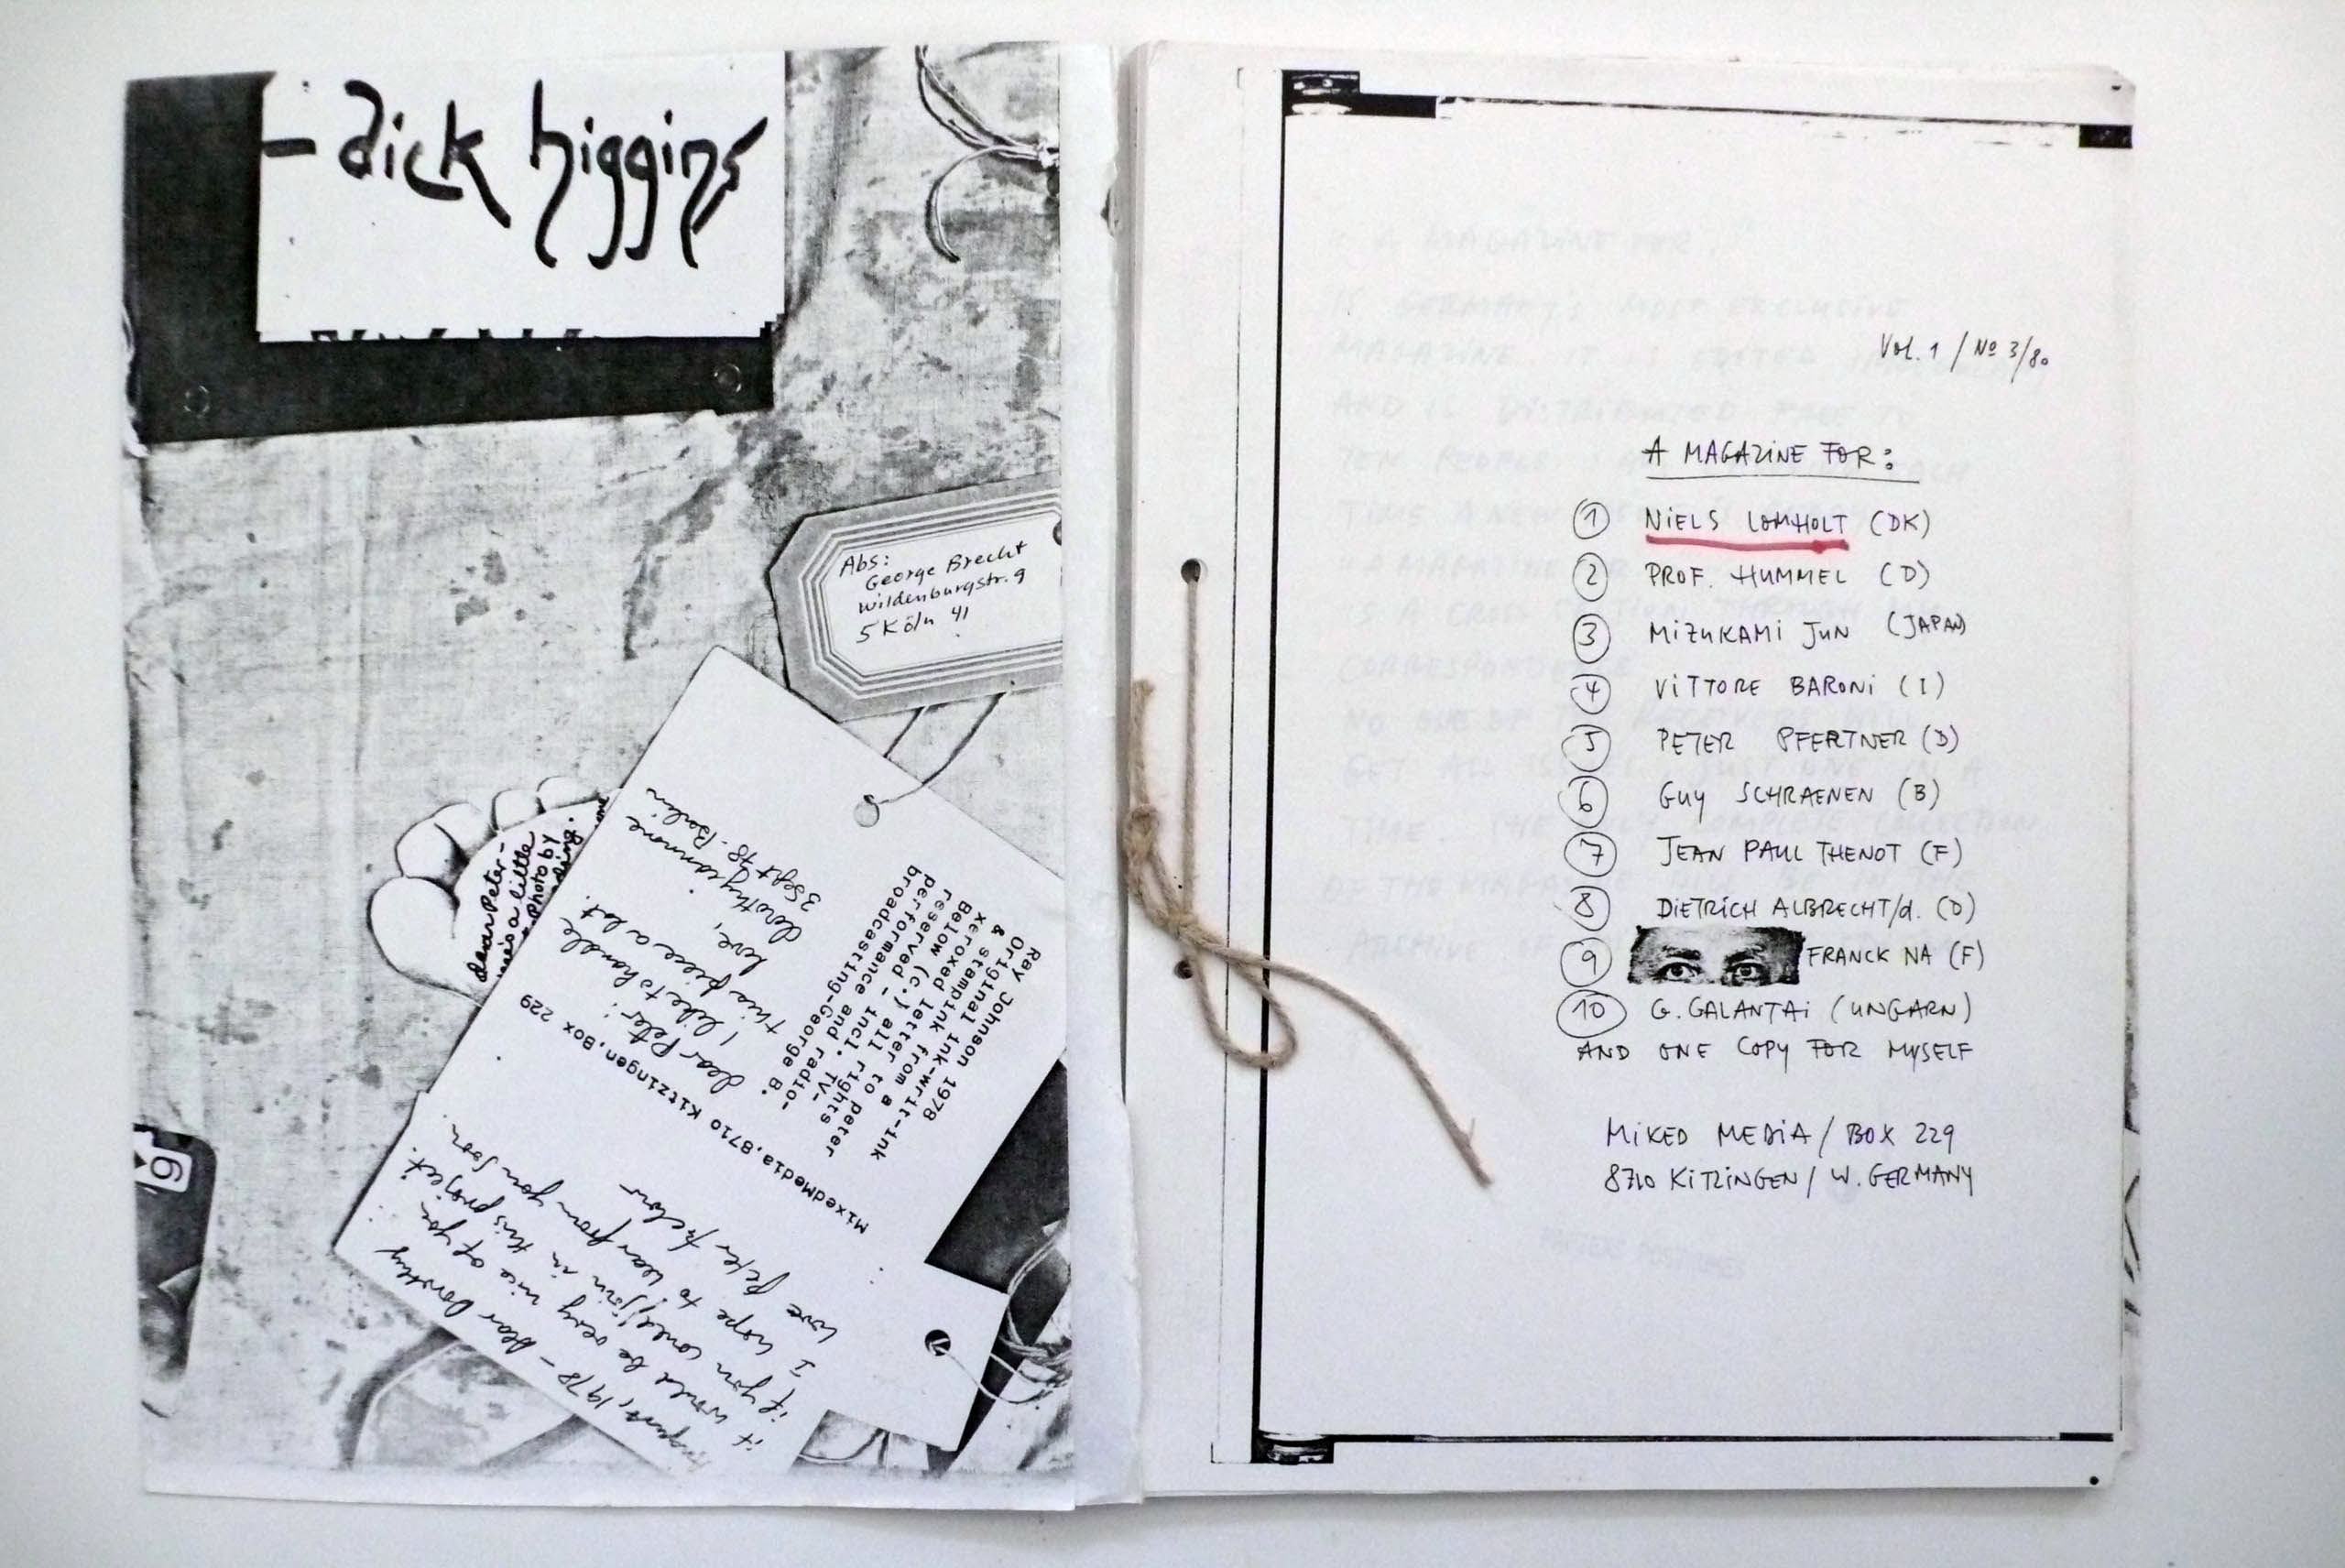 - dick higgins
Abs:
George Brecht
Wildenburgstr. 9
5 Köln 41
Dear Peter-
a little
Photo by
Ray Johnson 1978
Original ink-writ-ink
& stampink from a
xeroxed letter to peter
Below (c.) all rights
reserved - incl. TV-
performance and radio-
broadcasting-George B.
dear Peter!
I like to handle
this piece a lot.
love,
dorothy iannone
3 Sept 78. Berlin
MixedMedia, 8710 Kitzingen, Box 229
August, 1978 - Dear Dorothy
it would be very nice of you
if you could join in this project.
I hope to hear from you soon.
love Peter Below
6
Vol. 1 / No 3/80
A MAGAZINE FOR:
1 NIELS LOMHOLT (DK)
2 PROF. HUMMEL (D)
3 MIZUKAMI JUN (JAPAN)
4 VITTORE BARONI (I)
5 PETER PFERTNER (D)
6 GUY SCHRAENEN (B)
7 JEAN PAUL THENOT (F)
8 DIETRICH ALBRECHT/d. (D)
9 FRANCK NA (F)
10 G. GALANTAI (UNGARN)
AND ONE COPY FOR MYSELF
MIXED MEDIA / BOX 229
8710 KITZINGEN / W. GERMANY